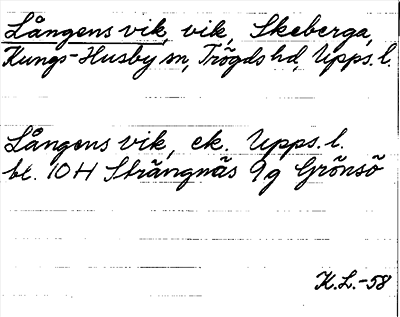 Långens vik, vik, Skeberga,
Kungs-Husby sn, Trögds hd, Upps. l.
Långens vik, ek. Upps. l.
bl. 10 H Strängnäs 9g Grönsö
K.L.-58